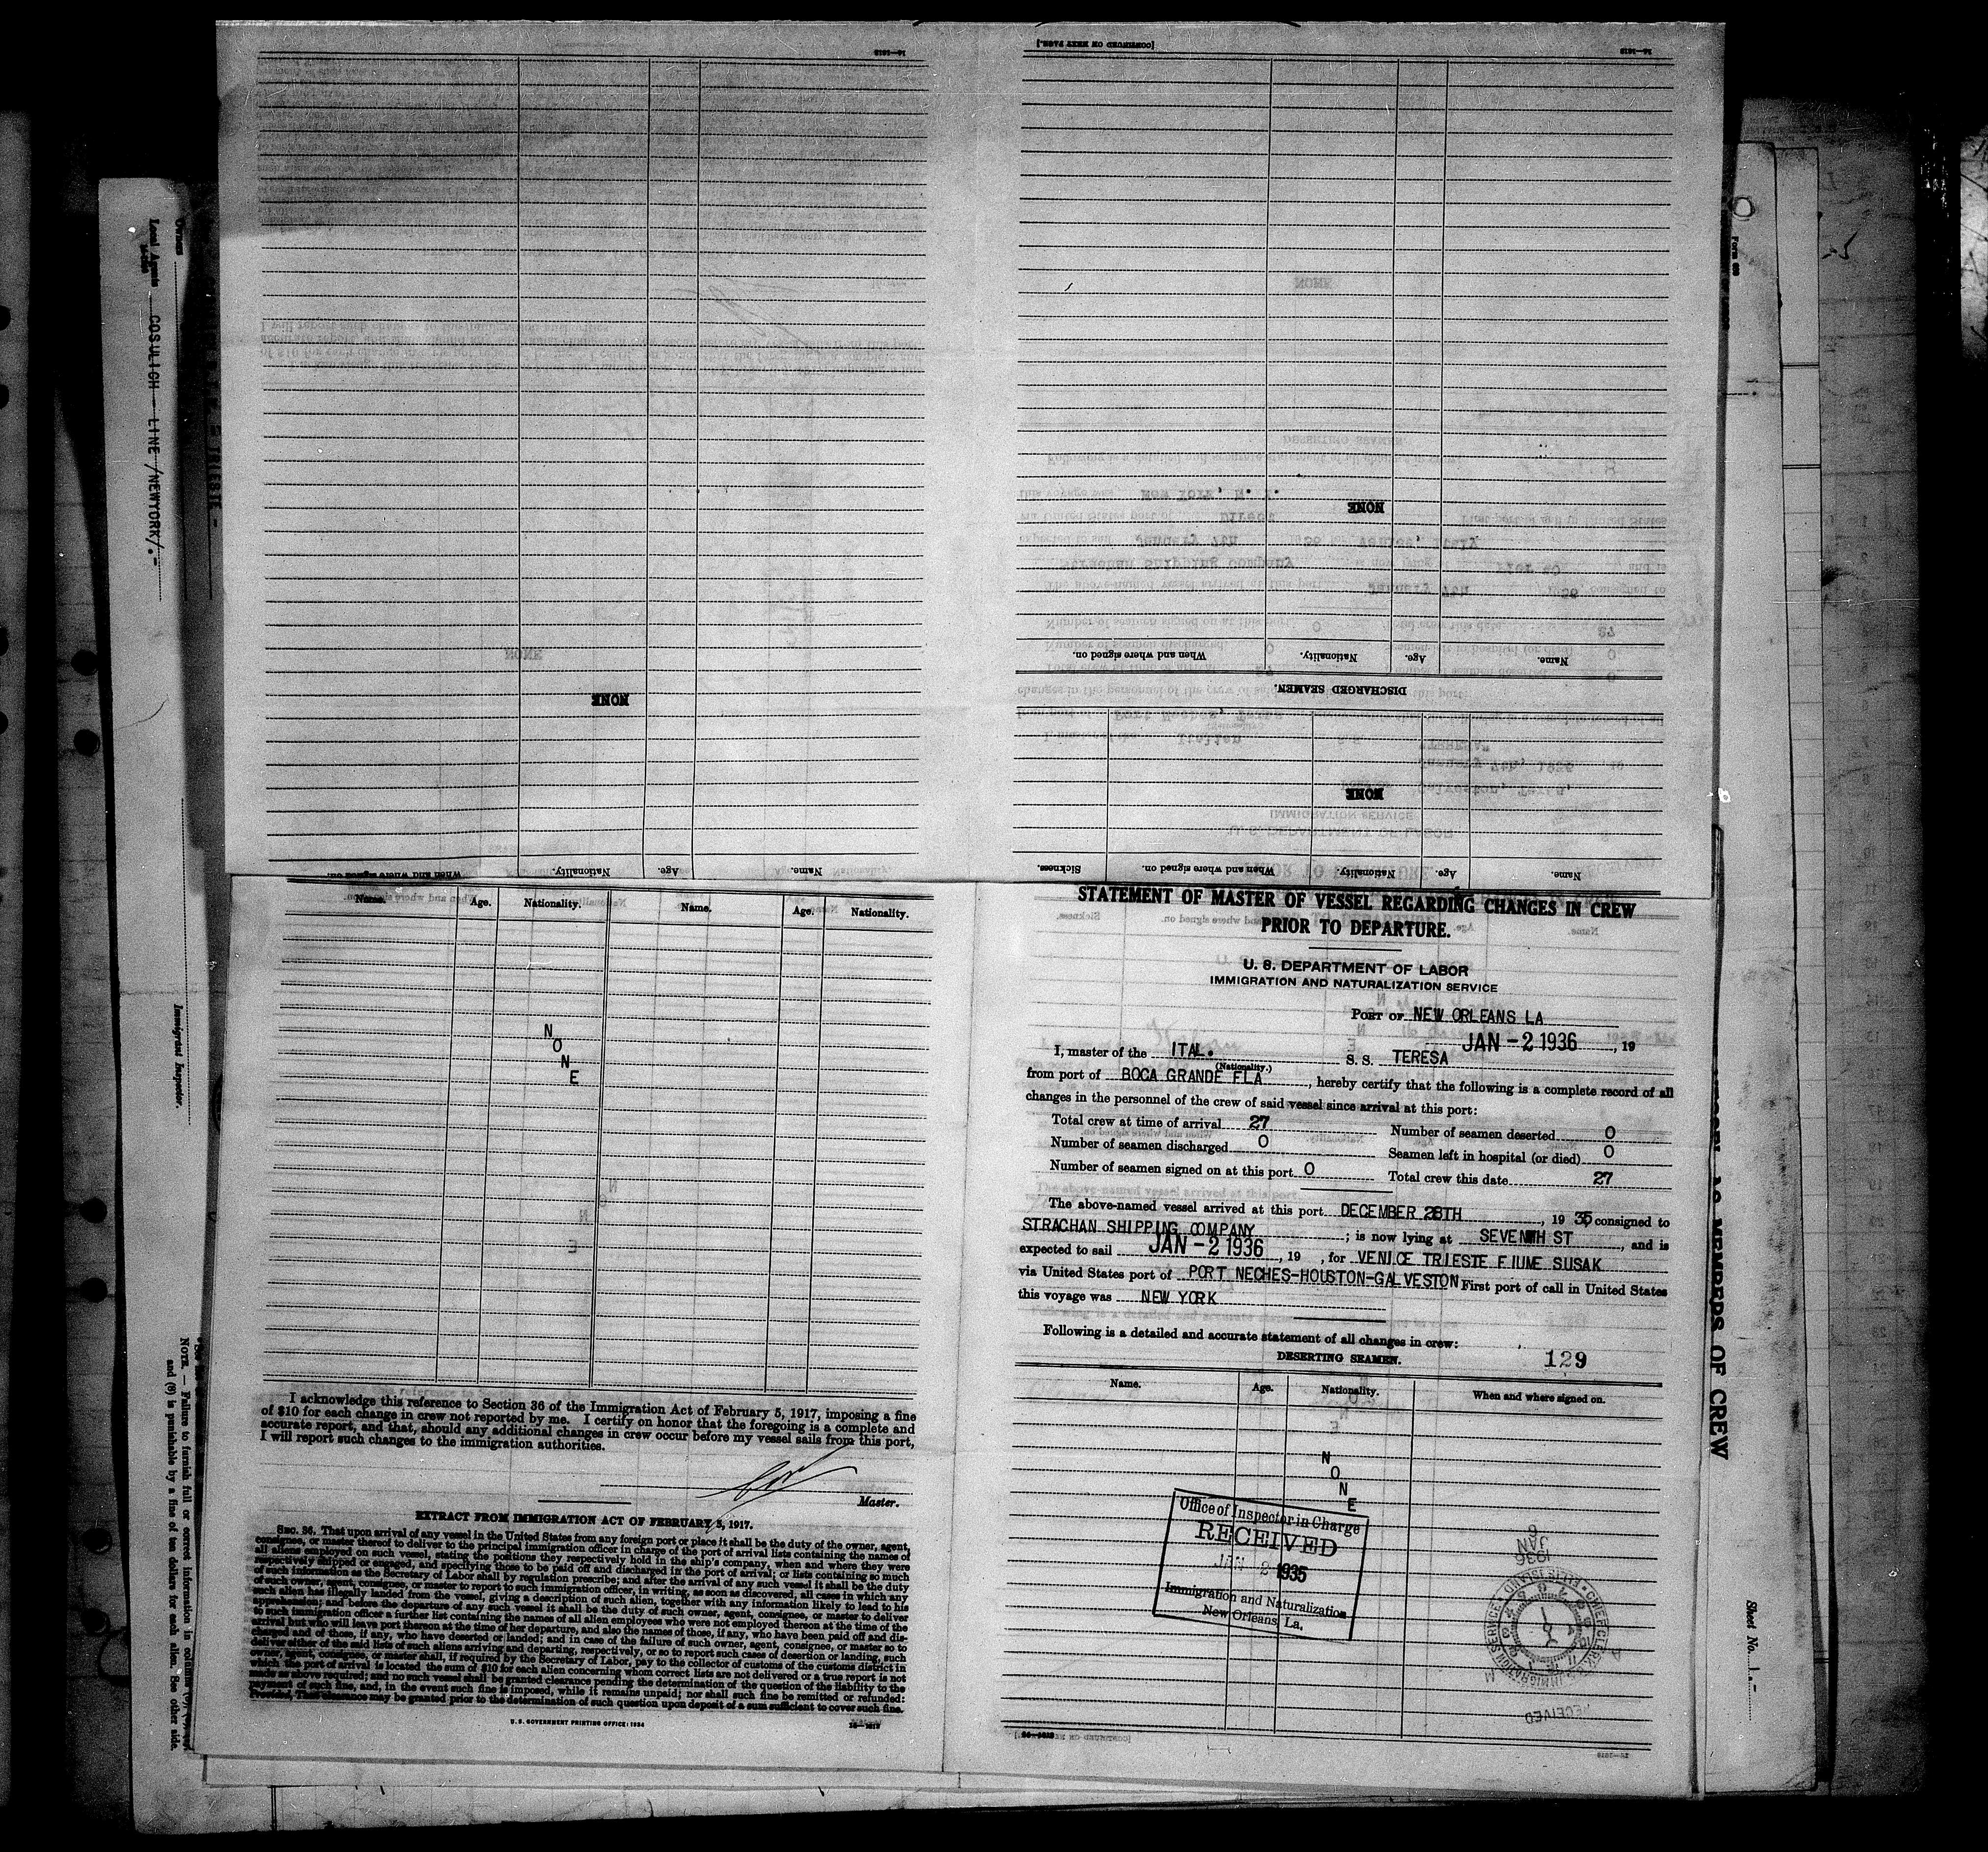 STATEMENT OF MASTER OF VESSEL REGARDING CHANGES IN CREW
PRIOR TO DEPARTURE.
U. S. DEPARTMENT OF LABOR
IMMIGRATION AND NATURALIZATION SERVICE
PORT OF NEW ORLEANS LA
JAN -2 1936, 19
I, master of the ITAL. S. S. TERESA
(Nationality.)
from port of BOCA GRANDE FLA, hereby certify that the following is a complete record of all
changes in the personnel of the crew of said vessel since arrival at this port:
Total crew at time of arrival 27 Number of seamen deserted 0
Number of seamen discharged 0 Seamen left in hospital (or died) 0
Number of seamen signed on at this port 0 Total crew this date 27
The above-named vessel arrived at this port DECEMBER 28TH, 19 35, consigned to
STRACHAN SHIPPING COMPANY; is now lying at SEVENTH ST, and is
expected to sail JAN -2 1936, 19 , for VENICE TRIESTE FIUME SUSAK
via United States port of PORT NECHES-HOUSTON-GALVESTON First port of call in United States
this voyage was NEW YORK
Following is a detailed and accurate statement of all changes in crew:
129
DESERTING SEAMEN.
Name. Age. Nationality. When and where signed on.
NONE
Office of Inspector in Charge
RECEIVED
JAN 2 1935
Immigration and Naturalization
New Orleans, La.
JAN
6
1936
RECEIVED
[CONTINUED ON NEXT PAGE.]
16—1613
Name. Age. Nationality. Name. Age. Nationality.
NONE
I acknowledge this reference to Section 36 of the Immigration Act of February 5, 1917, imposing a fine
of $10 for each change in crew not reported by me. I certify on honor that the foregoing is a complete and
accurate report, and that, should any additional changes in crew occur before my vessel sails from this port,
I will report such changes to the immigration authorities.
Master.
EXTRACT FROM IMMIGRATION ACT OF FEBRUARY 5, 1917.
SEC. 36. That upon arrival of any vessel in the United States from any foreign port or place it shall be the duty of the owner, agent,
consignee, or master thereof to deliver to the principal immigration officer in charge of the port of arrival lists containing the names of
all aliens employed on such vessel, stating the positions they respectively hold in the ship's company, when and where they were
respectively shipped or engaged, and specifying those to be paid off and discharged in the port of arrival; or lists containing so much
of such information as the Secretary of Labor shall by regulation prescribe; and after the arrival of any such vessel it shall be the duty
of such owner, agent, consignee, or master to report to such immigration officer, in writing, as soon as discovered, all cases in which any
such alien has illegally landed from the vessel, giving a description of such alien, together with any information likely to lead to his
apprehension; and before the departure of any such vessel it shall be the duty of such owner, agent, consignee, or master to deliver
to such immigration officer a further list containing the names of all alien employees who were not employed thereon at the time of the
arrival but who will leave port thereon at the time of her departure, and also the names of those, if any, who have been paid off and dis-
charged and of those, if any, who have deserted or landed; and in case of the failure of such owner, agent, consignee, or master so to
deliver either of the said lists of such aliens arriving and departing, respectively, or so to report such cases of desertion or landing, such
owner, agent, consignee, or master shall, if required by the Secretary of Labor, pay to the collector of customs of the customs district in
which the port of arrival is located the sum of $10 for each alien concerning whom correct lists are not delivered or a true report is not
made as above required; and no such vessel shall be granted clearance pending the determination of the question of the liability to the
payment of such fine, and, in the event such fine is imposed, while it remains unpaid; nor shall such fine be remitted or refunded:
Provided, That clearance may be granted prior to the determination of such question upon deposit of a sum sufficient to cover such fine.
U. S. GOVERNMENT PRINTING OFFICE: 1934
16—1613
Name. Age. Nationality. When and where signed on. Sickness.
NONE
DISCHARGED SEAMEN.
Name. Age. Nationality. When and where signed on.
NONE
[CONTINUED ON NEXT PAGE.]
16—1613
Name. Age. Nationality. When and where signed on.
NONE
16—1613
Owners
Local Agents COSULICH LINE /NEWYORK/.-
TRIESTE -
Immigrant Inspector.
NOTE.—Failure to furnish full or correct information in columns
and (8) is punishable by a fine of ten dollars for each alien. See other side.
MEMBERS OF CREW
Sheet No. 1.-